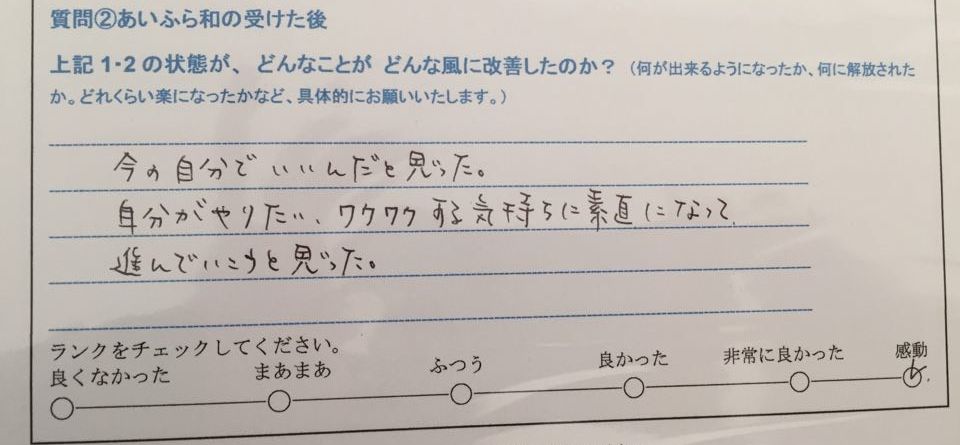 質問②あいふら和の受けた後
上記1・2の状態が、どんなことが どんな風に改善したのか？（何が出来るようになったか、何に解放された
か。どれくらい楽になったかなど、具体的にお願いいたします。）
今の自分でいいんだと思った。
自分がやりたい、ワクワクする気持ちに素直になって
進んでいこうと思った。
ランクをチェックしてください。
良くなかった まあまあ ふつう 良かった 非常に良かった 感動